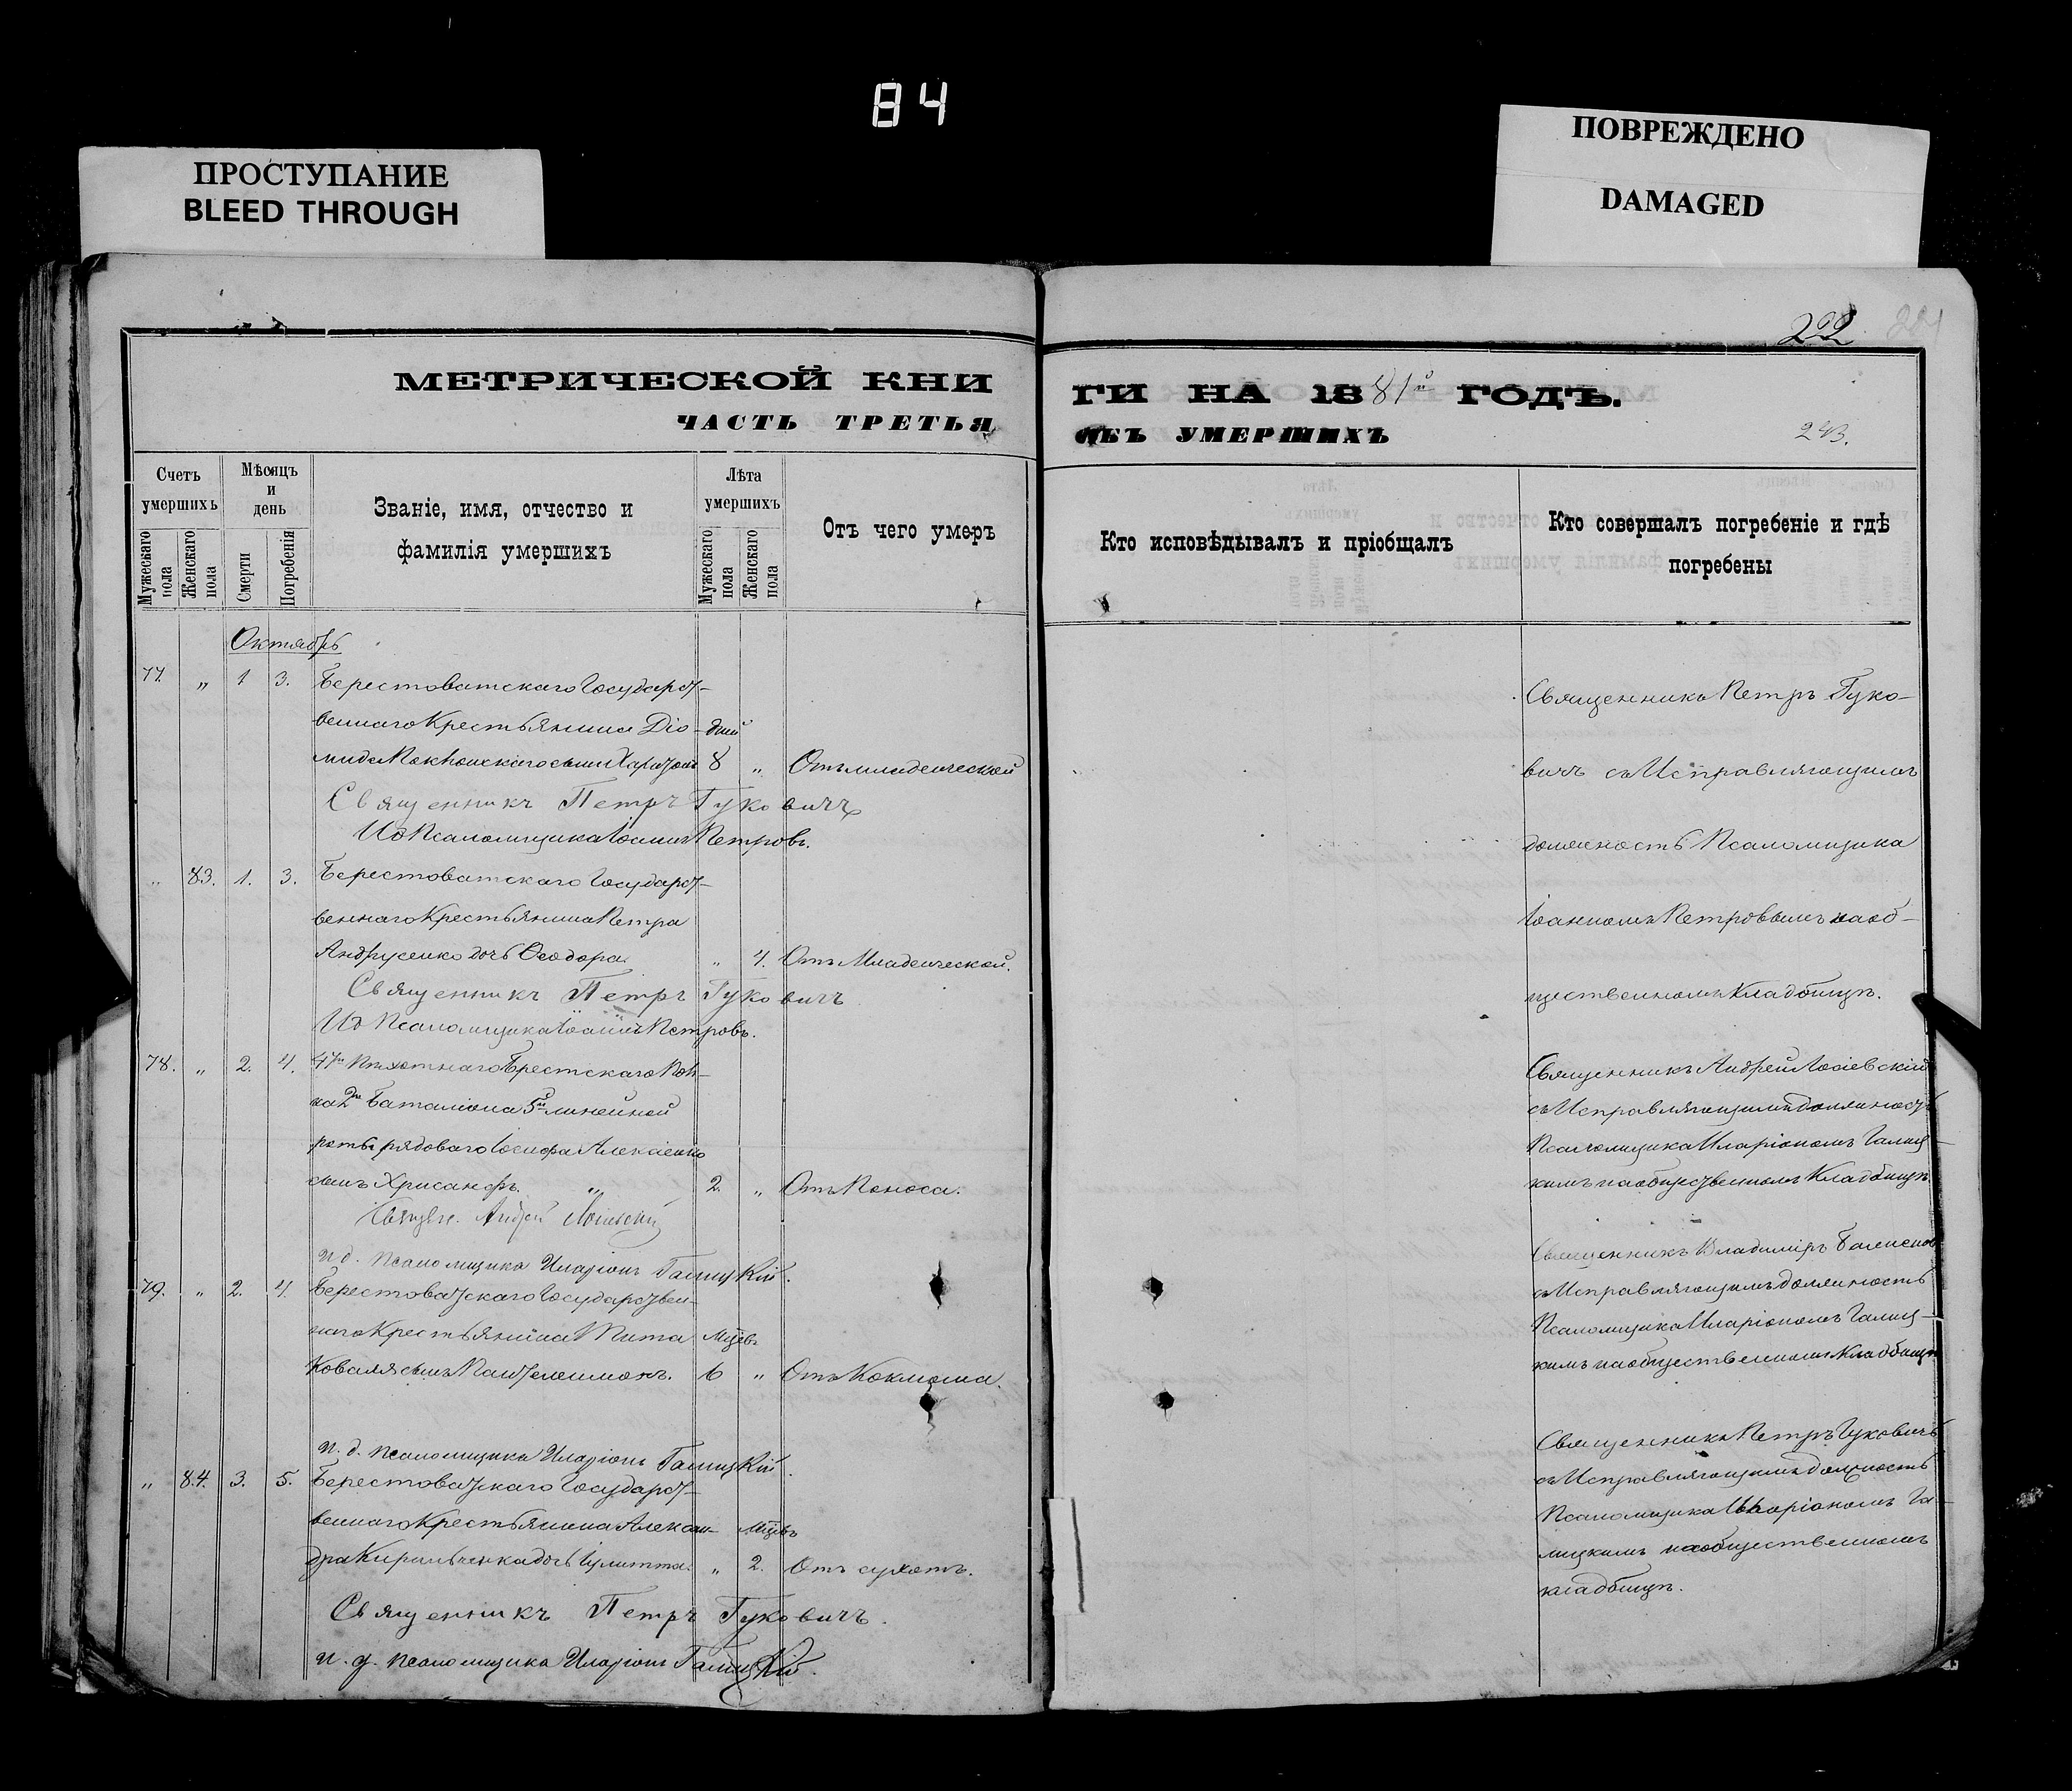 84
ПРОСТУПАНИЕ
BLEED THROUGH
ПОВРЕЖДЕНО
DAMAGED
222
МЕТРИЧЕСКОЙ КНИ
ЧАСТЬ ТРЕТЬЯ
Счетъ умершихъ
Мужескаго пола
Женскаго пола
Мѣсяцъ и день
Смерти
Погребенія
Званіе, имя, отчество и
фамилія умершихъ
Лѣта умершихъ
Мужескаго пола
Женскаго пола
Отъ чего умеръ
Октябрь
77. „ 1 3. Берестоватскаго Государст-
веннаго Крестьянина Діо- дней
мида сынъ 8 „ Отъ младенческой
Священникъ Петръ Гуковичъ
Ид Псаломщика Іоаннъ Петровъ.
„ 83. 1. 3. Берестоватскаго Государст-
веннаго Крестьянина Петра
Андрусенко дочь Ѳеодора „ 4. Отъ Младенческой.
Священникъ Петръ Гуковичъ
Ид Псаломщика Іоаннъ Петровъ.
78. „ 2. 4. Пѣхотнаго Брестскаго Пол-
ка 2го Баталіона 5й линейной
роты рядоваго Іосифа Алексіенко
сынъ Хрисанфъ. „ 2. „ Отъ Поноса.
Священ. Андрей
и. д. псаломщика Иларіонъ Галицкій.
79. „ 2. 4. Берестоватскаго Государствен-
наго Крестьянина Тита Мцевъ
Коваля сынъ Пантелеимонъ. 6 „ Отъ Коклюша.
и. д. псаломщика Иларіонъ Галицкій.
„ 84. 3. 5. Берестоватскаго Государст-
веннаго Крестьянина Алексан- Мцевъ
дра Кирильченка дочь Іулитта. „ 2. Отъ сухотъ.
Священникъ Петръ Гуковичъ.
и. д. псаломщика Иларіонъ Галицкій.
ГИ НА 1881й ГОДЪ.
ОБЪ УМЕРШИХЪ
243.
Кто исповѣдывалъ и пріобщалъ
Кто совершалъ погребеніе и гдѣ
погребены
Священникъ Петръ Гуко-
вичъ съ Исправляющимъ
должность Псаломщика
Іоанномъ Петровымъ на об-
щественномъ Кладбищѣ.
Священникъ Андрей
съ Исправляющимъ должность
Псаломщика Иларіономъ Галиц-
кимъ на общественномъ Кладбищѣ
Священникъ Владиміръ
съ Исправляющимъ должность
Псаломщика Иларіономъ Галиц-
кимъ на общественномъ Кладбищѣ
Священникъ Петръ Гуковичъ
съ Исправляющимъ должность
Псаломщика Иларіономъ Га-
лицкимъ на общественномъ
кладбищѣ.